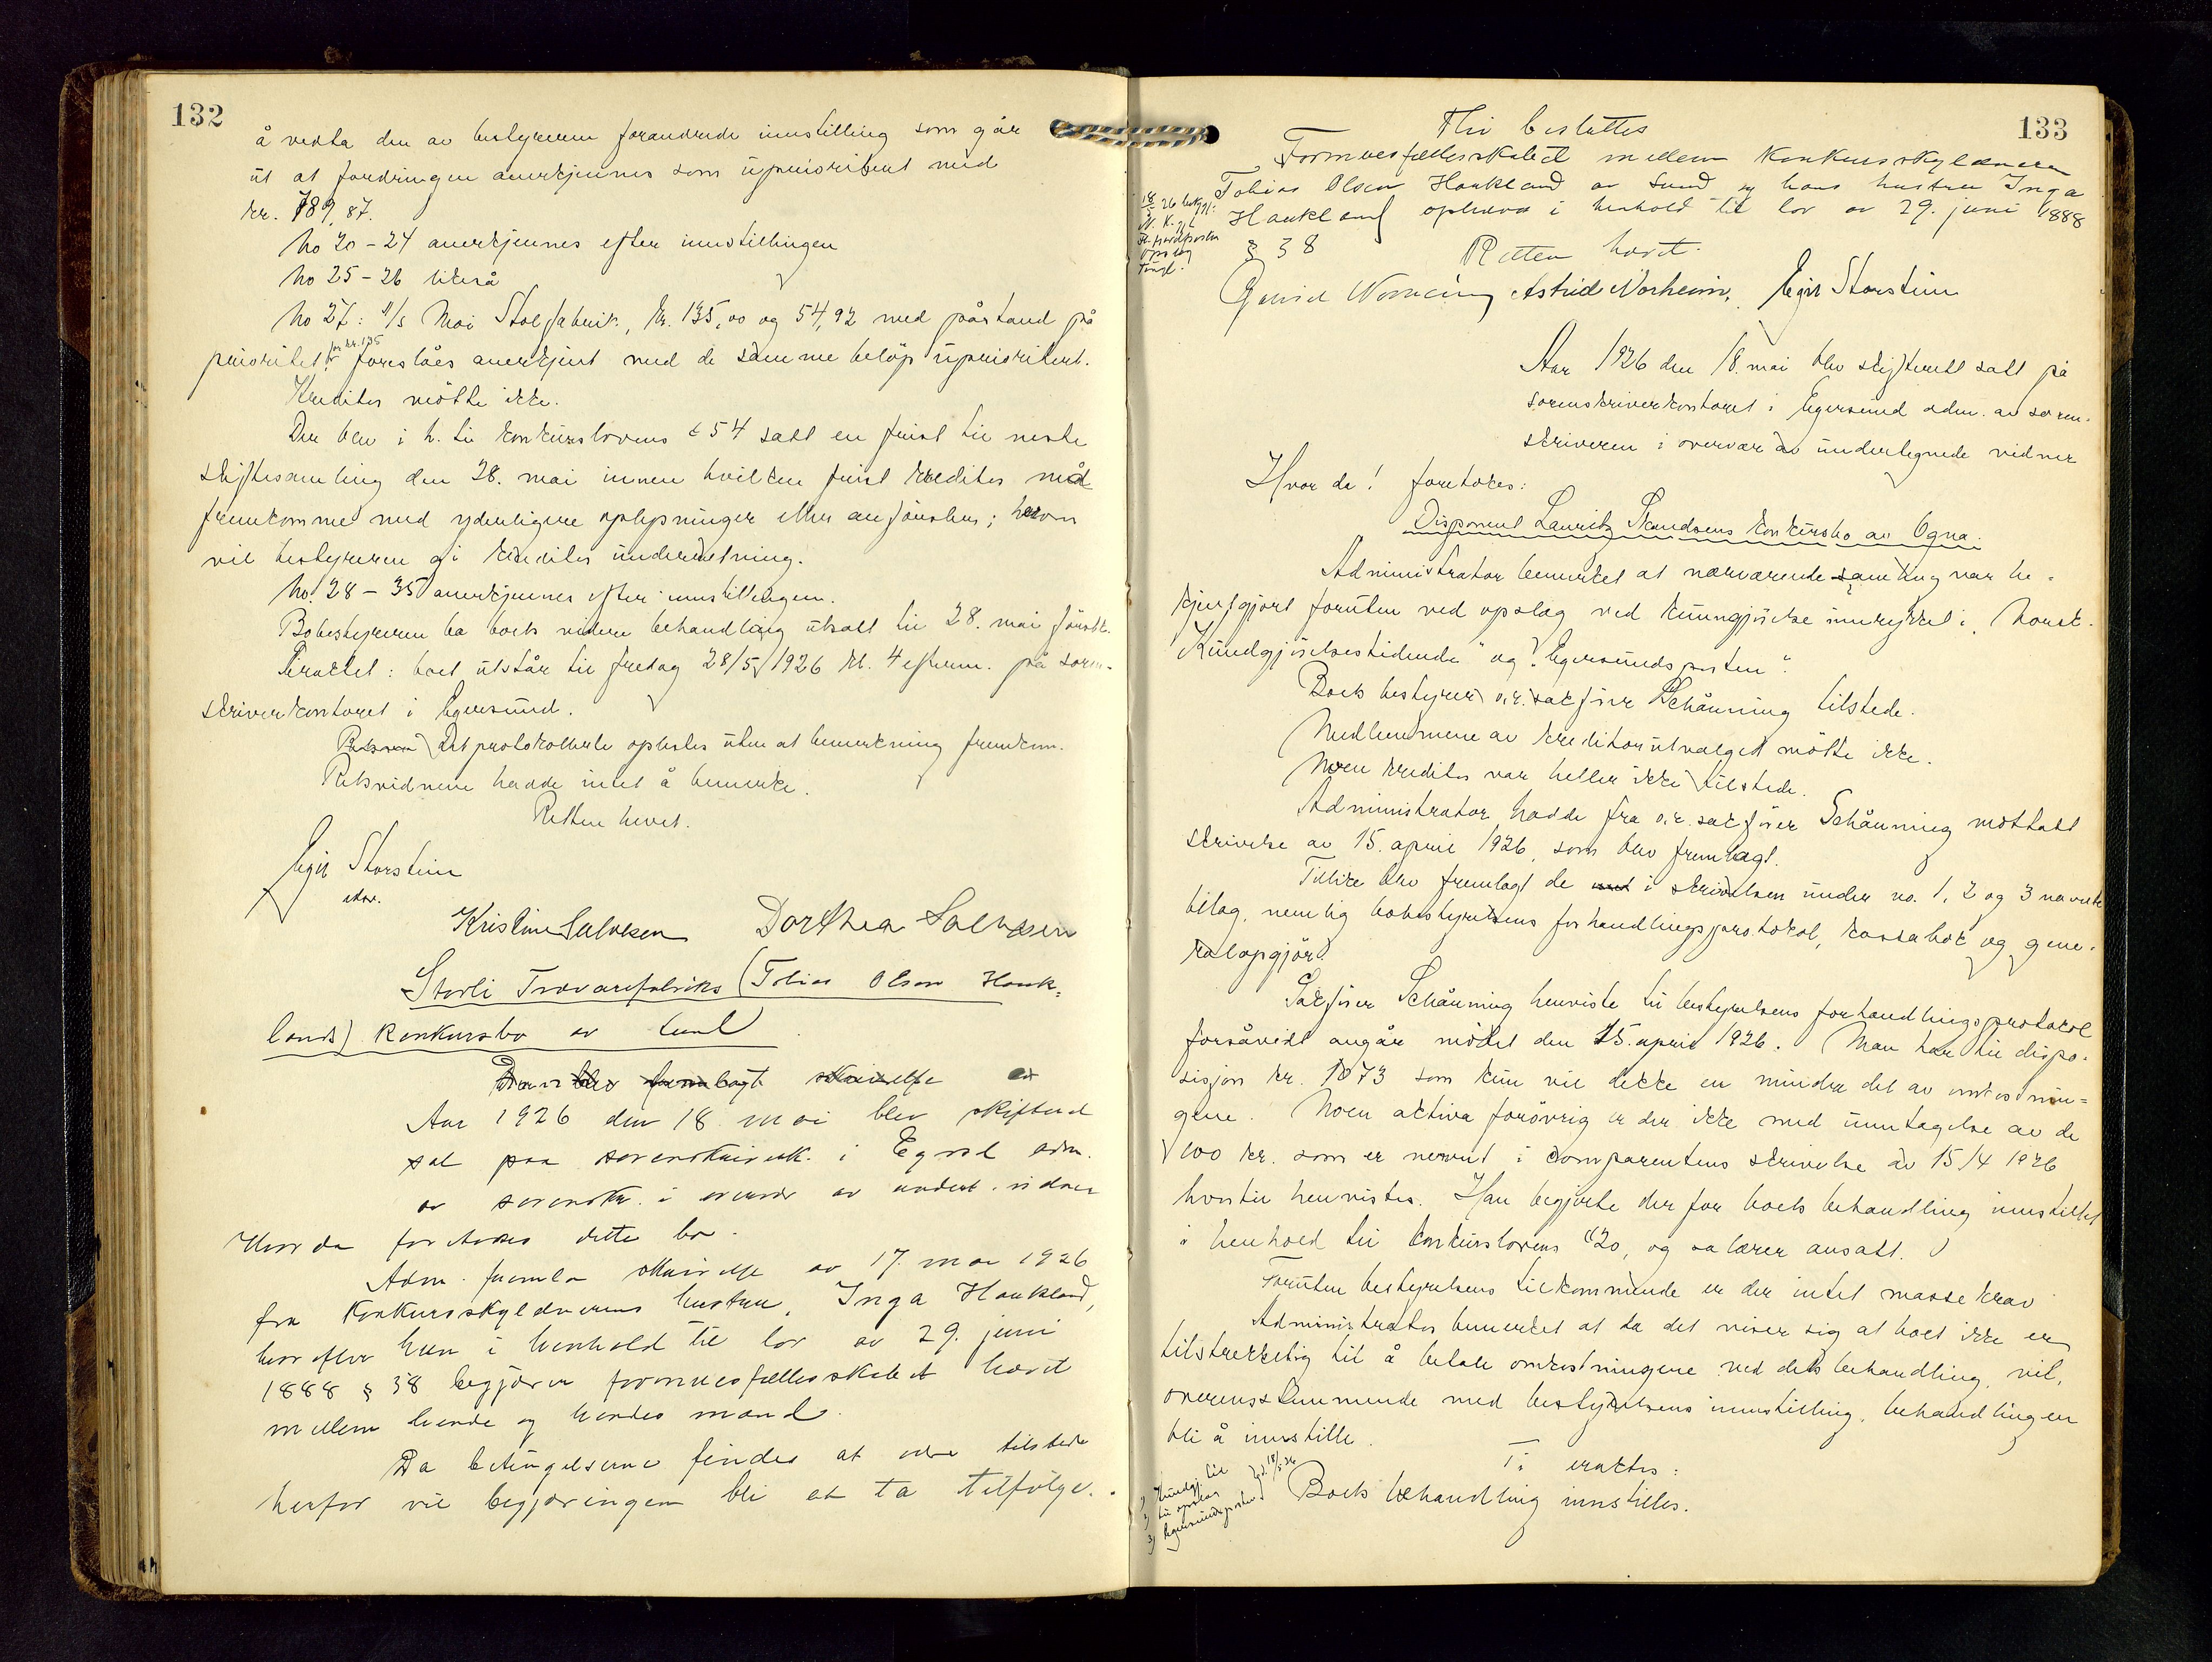 132
å vedta den av bestyreren forandrede innstilling som går
ut at fordringen anerkjennes som uprioritert med
kr. 789,87.
No 20 – 24 anerkjennes efter innstillingen
No 25 – 26 likeså
No 27: A/S Moi Stolfabrik, kr. 135,00 og 54,92 med påstand på
prioritet for kr. 135 foreslåes anerkjent med de samme beløp uprioritert.
Kreditor møtte ikke.
Der blev i h. til konkurslovens § 54 satt en frist til neste
skiftesamling den 28. mai innen hvilken frist kreditor må
fremkomme med yderligere oplysninger eller anførsler; herom
vil bestyreren gi kreditor underretning.
No. 28 – 35 anerkjennes efter innstillingen.
Bobestyreren ba boets videre behandling utsatt til 28. mai førstk.
Eraktet: boet utstår til fredag 28/5 1926 kl. 4 efterm. på soren-
skriverkontoret i Egersund.
Det protokollerte oplestes uten at bemerkning fremkom.
Retsvidnene hadde intet å bemerke.
Retten hevet.
Egil Storstein
Kristine Salvesen Dorthea Salvesen
Storli Trævarefabriks (Tobias Olsen Hauk-
lands) konkursbo av Lund
Der blev fremlagt skrivelse av
Aar 1926 den 18 mai blev skifteret
sat paa sorenskriverk. i Egersd adm.
av sorenskr. i overvær av undert. vidner
Hvor da foretokes dette bo.
Adm. fremla skrivelse av 17. mai 1926
fra konkursskyldnerens hustru, Inga Haukland,
hvorefter hun i henhold til lov av 29. juni
1888 § 38 begjærer formuesfællesskabet hævet
mellem hende og hendes mand.
Da betingelserne findes at være tilstede
herfor vil begjæringen bli at ta tilfølge.
133
Thi besluttes
Formuesfællesskabet mellem konkursskyldneren
Tobias Olsen Haukland av Lund og hans hustru Inga
Haukland ophæves i henhold til lov av 29. juni 1888
§ 38
Retten hævet.
Astrid Norheim. Egil Storstein
Aar 1926 den 18. mai blev skifterett satt på
sorenskriverkontoret i Egersund adm. av soren-
skriveren i overvær av undertegnede vidner
Hvor da! foretokes:
Disponent Lauritz Skandsens konkursbo av Ogna.
Administrator bemerket at nærværende samling var be-
kjentgjort foruten ved opslag ved kunngjørelse innrykket i "Norsk
Kundgjørelsestidende" og "Egersundsposten".
Boets bestyrer o.r.sakfører Schånning tilstede.
Medlemmene av kreditorutvalget møtte ikke.
Noen kreditor var heller ikke tilstede.
Administrator hadde fra o.r. sakfører Schånning mottatt
skrivelse av 15. april 1926, som blev fremlagt.
Tillike blev fremlagt de i skrivelsen under no. 1, 2 og 3 nevnte
bilag, nemlig bobestyrelsens forhandlingsprotokol, kassabok og gene-
ralopgjør.
Sakfører Schånning henviste til bestyrelsens forhandlingsprotokol
forsåvidt angår møtet den 15. april 1926. Man har til dispo-
sisjon kr. 1073 som kun vil dekke en mindre del av omkostnin-
gene. Noen aktiva forøvrig er der ikke med unntagelse av de
100 kr. som er nevnt i komparentens skrivelse av 15/4 1926
hvortil henvistes. Han begjærte derfor boets behandling innstillet
i henhold til konkurslovens § 20, og salærer ansatt.
Foruten bestyrelsens tilkommende er der intet massekrav
Administrator bemerket at da det viser sig at boet ikke er
tilstrekkelig til å betale omkostningene ved dets behandling, vil,
overensstemmende med bestyrelsens innstilling, behandlingen
bli å innstille.
Ti eraktes:
Boets behandling innstilles.